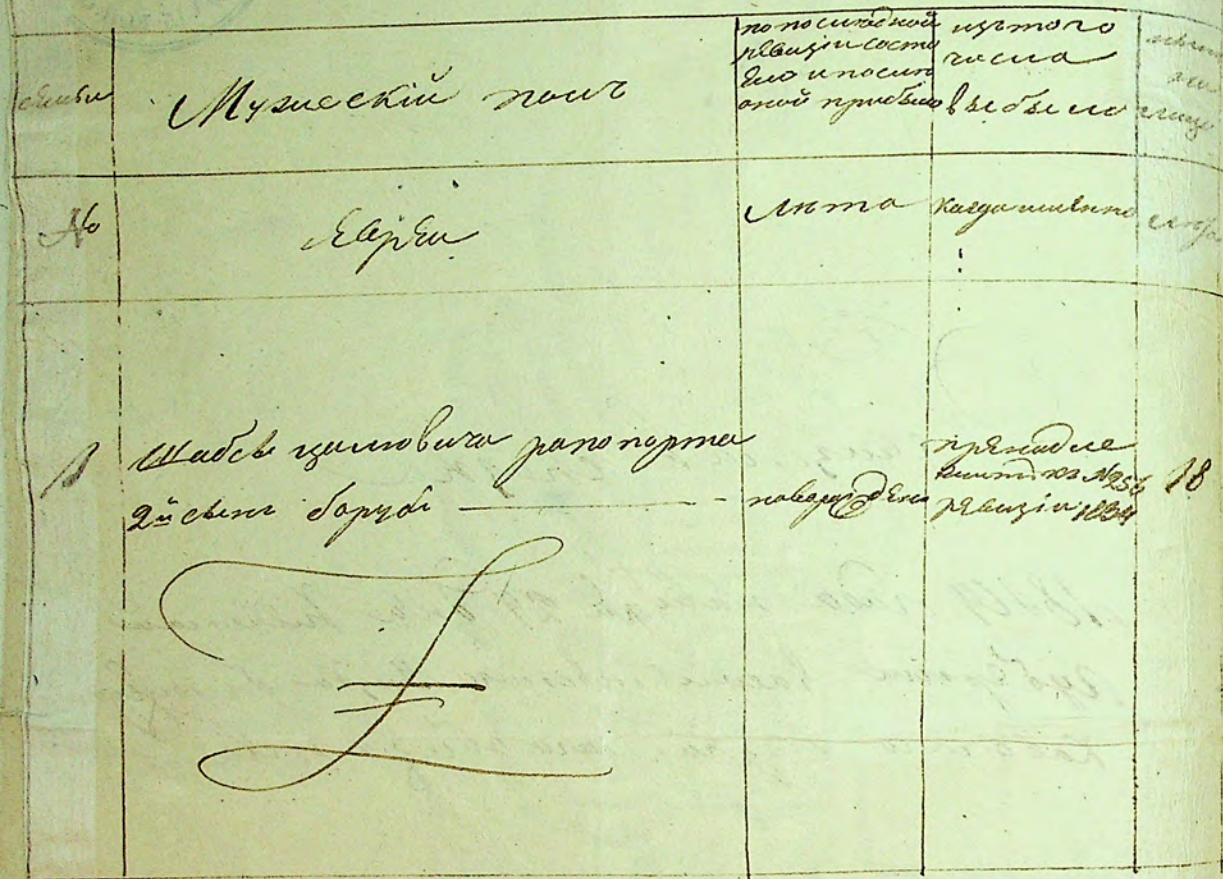 семьи
Мужескій полъ
по последной
ревизіи состо
яло и после
оной прибыло
изътого
числа
выбыло
№
Евреи
лѣта
Когда именно
лѣта
1
Шабсы рапопорта
2й сынъ борухъ
новорожденъ
къ № 256
ревизіи 1834
18